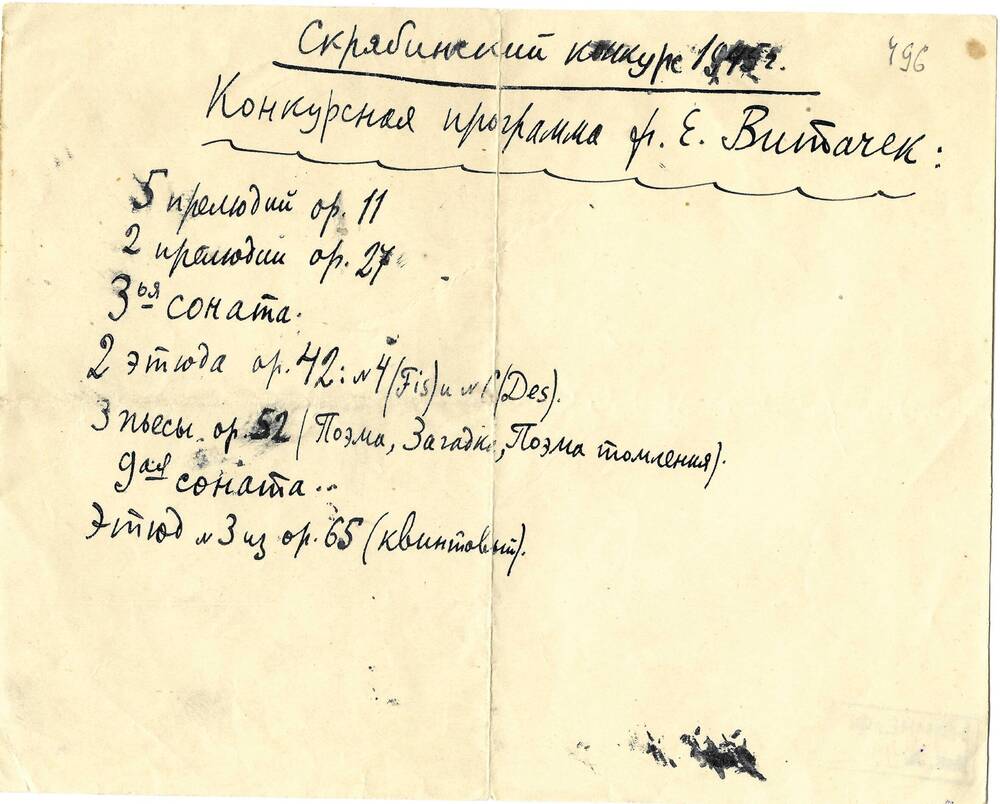 Скрябинский конкурс 1945 г.
496
Конкурсная программа ф. Е. Витачек:
5 прелюдий op. 11
2 прелюдии op. 27
3ья соната.
2 этюда op. 42: №4 (Fis) и № (Des).
3 пьесы op. 52 (Поэма, Загадка, Поэма томления).
9ая соната..
Этюд №3 из op. 65 (квинтовый).